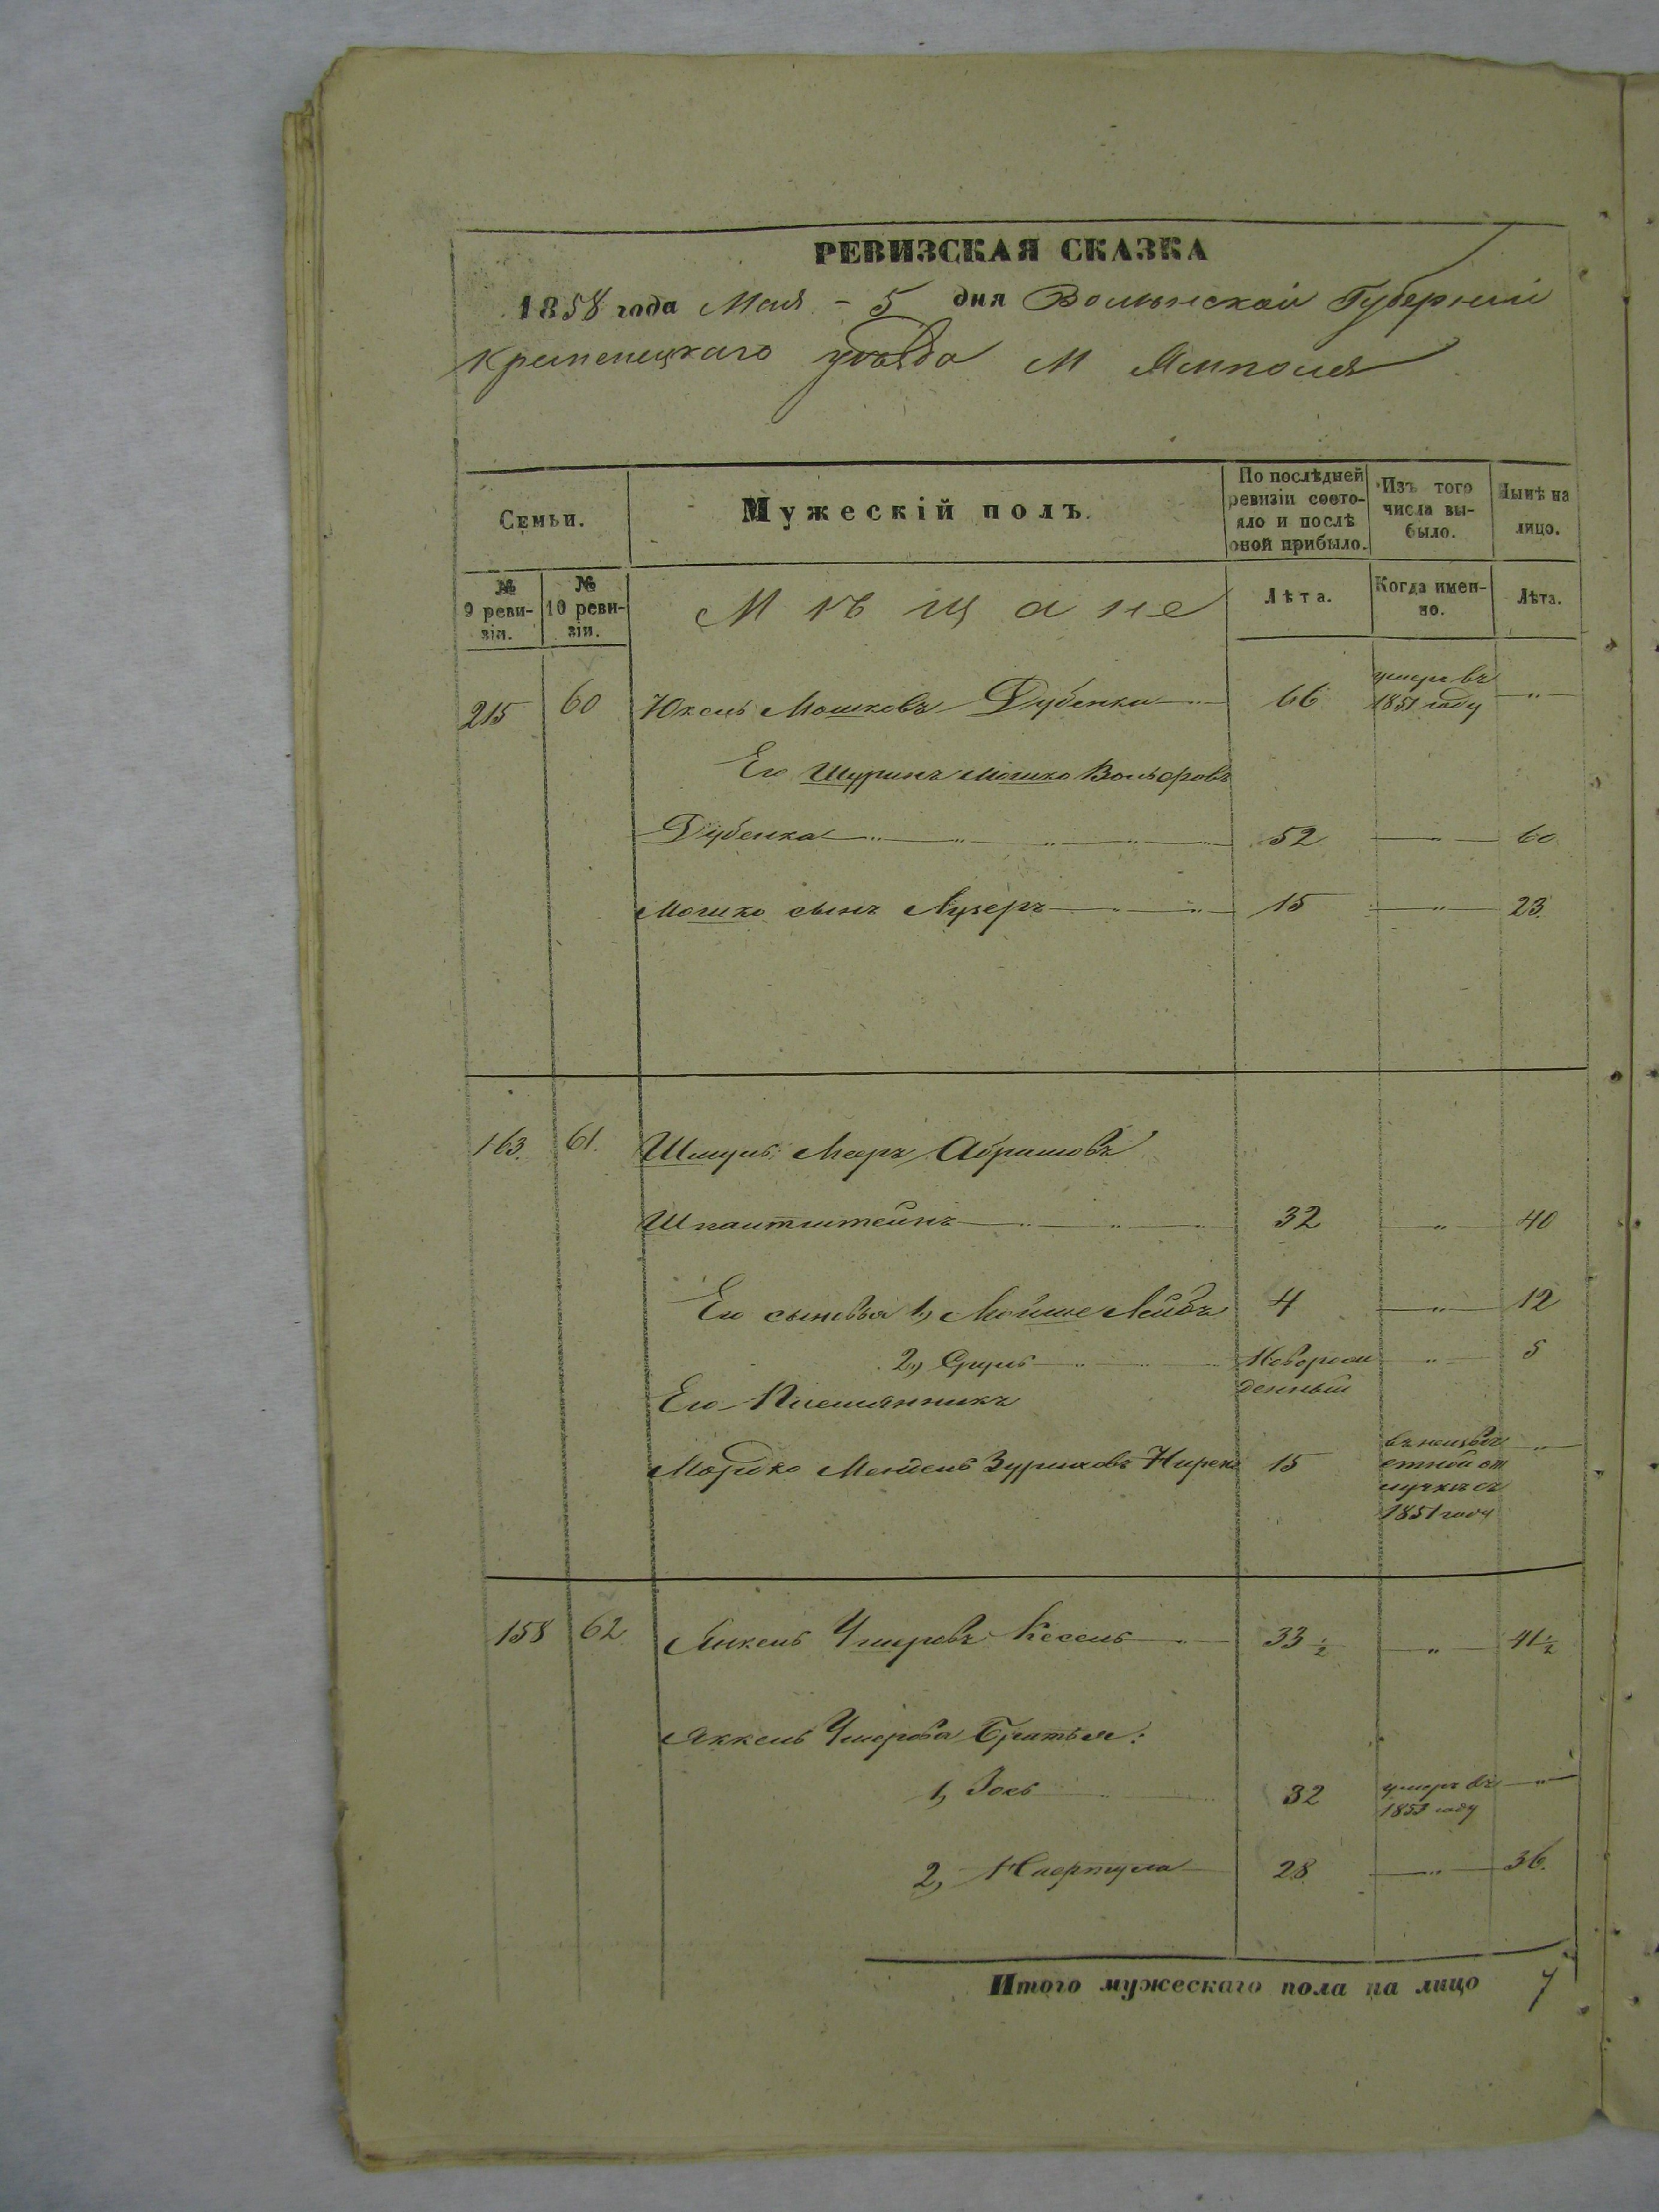 РЕВИЗСКАЯ СКАЗКА
1858 года Мая - 5 дня Волынской Губернiи
Кременецкаго уѣзда М Ямполя
Семьи.
Мужескiй полъ.
По послѣдней ревизiи состо-
яло и послѣ
оной прибыло.
Изъ того
числа вы-
было.
Нынѣ на
лицо.
№
9 реви-
зiи.
№
10 реви-
зiи.
Мѣщане
Лѣта.
Когда имен-
но.
Лѣта.
215 60 Юкель Мошковъ Дубенка 66 умеръ въ
1851 году
Его Шуринъ Мошко Вольфовъ
Дубенка 52 60
Мошко сынъ Лузеръ 15 23.
163. 61. Шмуль Меръ Абрамовъ
32 40
Его сыновья 1, Мойше Лейбъ 4 12
2, Сруль Неворож
денный 5
Его Племянникъ
Мордко Мендель 15 въ неизвѣ
стной от
лучкѣ съ
1851 года
158 62 Янкель Умеровъ Кесель 33 1/2 41 1/2
Янкель Умерова Братья:
1, 32 умеръ въ
1853 году
2, 28 36.
Итого мужескаго пола на лицо 7